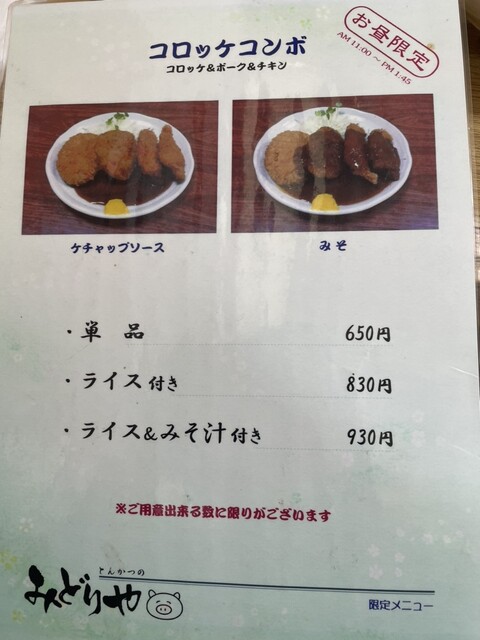 コロッケコンボ
コロッケ&ポーク&チキン
お昼限定
AM 11:00 ～ PM 1:45
ケチャップソース
みそ
・単品 650円
・ライス付き 830円
・ライス&みそ汁付き 930円
※ご用意出来る数に限りがございます
とんかつの
みどりや
限定メニュー